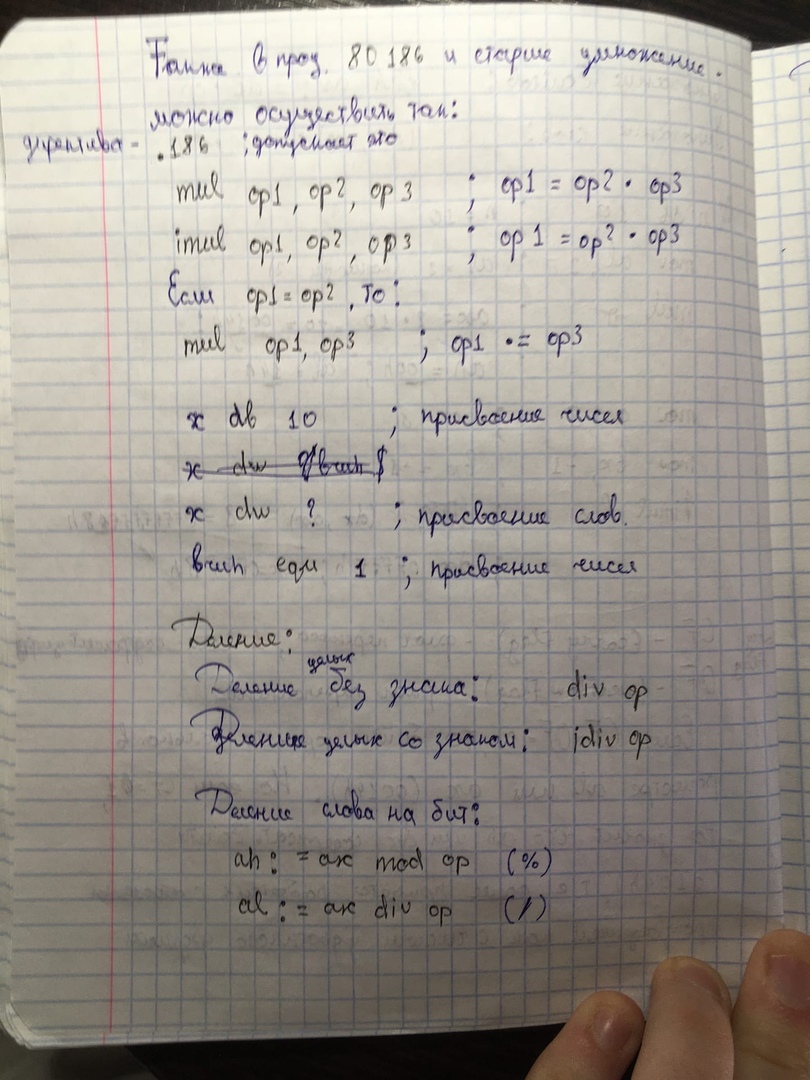 Также в проц. 80186 и старше умножение
можно осуществить так:
директива - .186 ;допускает это
mul op1, op2, op3 ; op1 = op2 · op3
imul op1, op2, op3 ; op1 = op2 · op3
Если op1 = op2, то:
mul op1, op3 ; op1 ·= op3
x db 10 ; присвоение чисел
x dw
x dw ? ; присвоение слов.
bruh equ 1 ; присвоение чисел
Деление:
Деление целых без знака: div op
Деление целых со знаком: idiv op
Деление слова на бит:
ah := ax mod op (%)
al := ax div op (/)